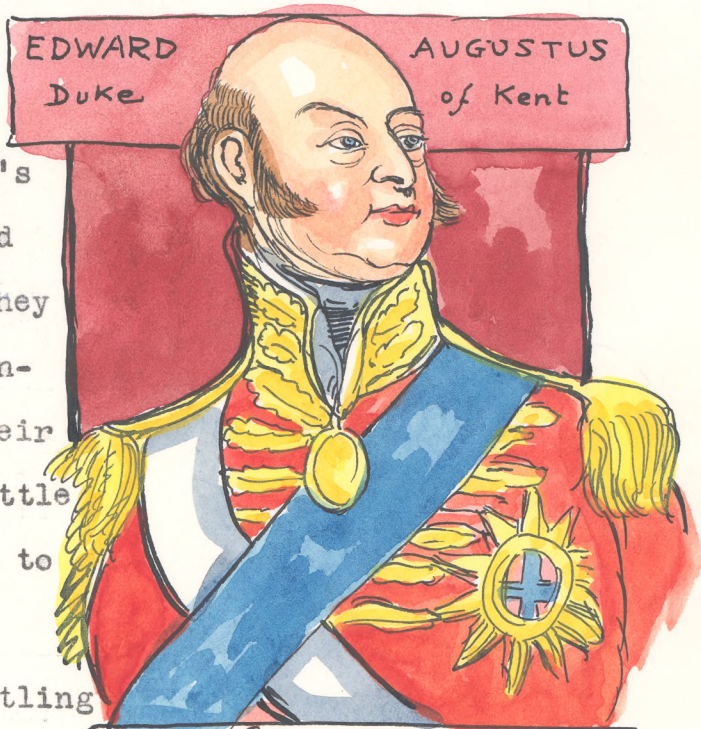 EDWARD AUGUSTUS
Duke of Kent
's
d
hey
n-
eir
ttle
to
tling